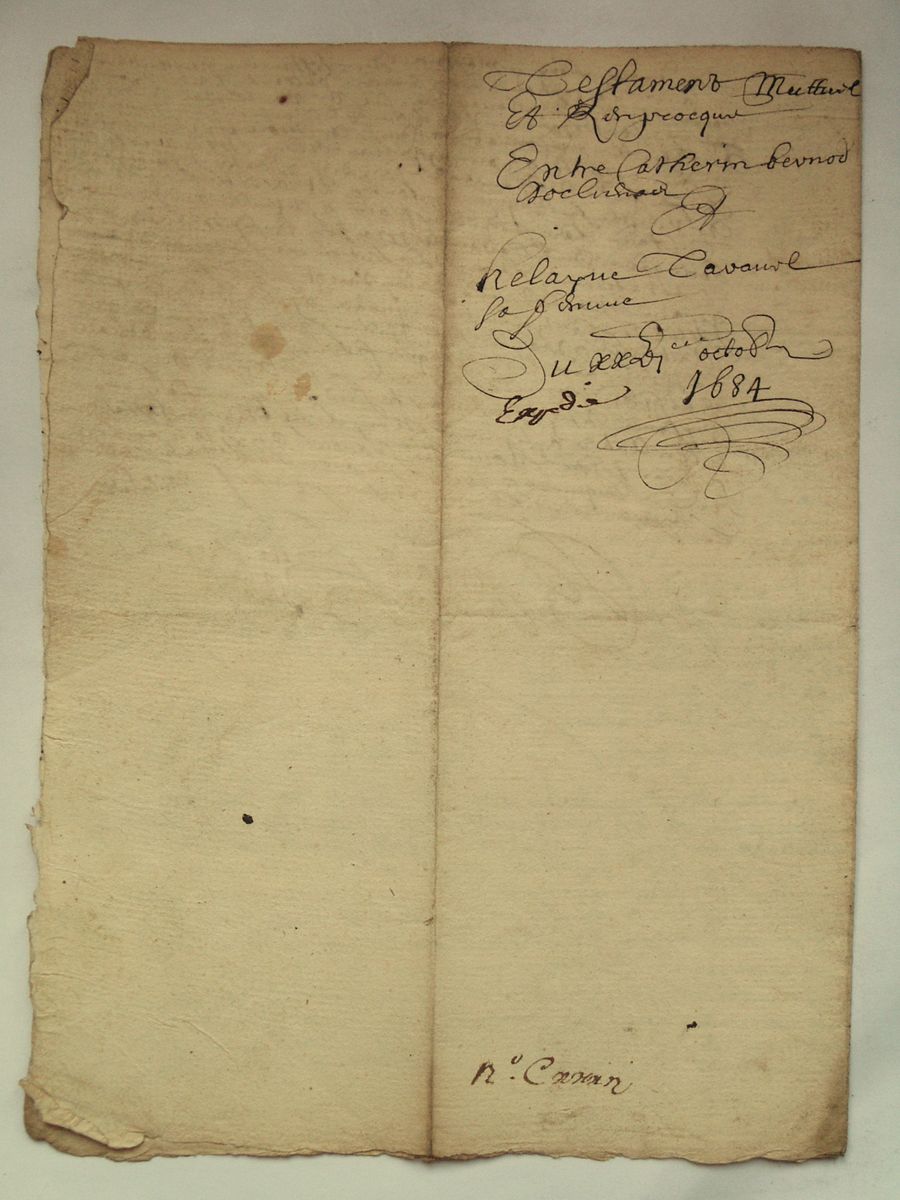 Testament Muttuel
Et Resiprocque
Entre Catherin bernod
Et
helayne Tavanel
sa femme
Du xx octob
1684
Expedie
n°. C